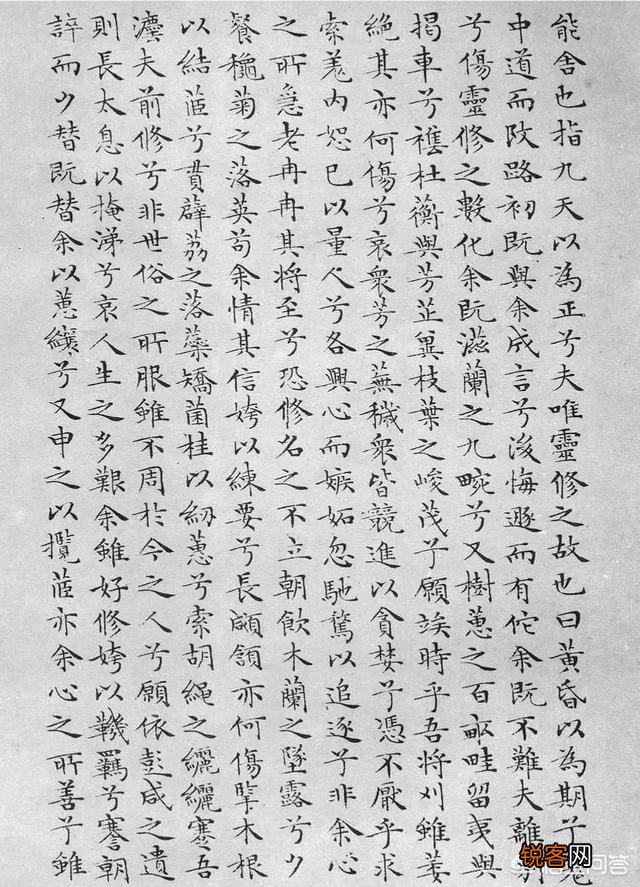 能舍也指九天以為正兮夫唯靈修之故也曰黃昏以為期兮羌
中道而改路初既與余成言兮後悔遯而有佗余既不難夫離
兮傷靈修之數化余既滋蘭之九畹兮又樹蕙之百畝畦留夷與
揭車兮襍杜蘅與芳芷兾枝葉之峻茂兮願竢時乎吾將刈雖萎
絕其亦何傷兮哀衆芳之蕪穢衆皆競進以貪婪兮憑不厭乎求
索羌内恕己以量人兮各興心而嫉妬忽馳騖以追逐兮非余心
之所急老冉冉其將至兮恐修名之不立朝飲木蘭之墜露兮夕
餐穐菊之落英苟余情其信姱以練要兮長顑頷亦何傷掔木根
以結茝兮貫薜荔之落蘂矯菌桂以紉蕙兮索胡繩之纚纚謇吾
灋夫前修兮非世俗之所服雖不周於今之人兮願依彭咸之遺
則長太息以掩涕兮哀人生之多艱余雖好修姱以鞿羈兮謇朝
誶而夕替既替余以蕙纕兮又申之以攬茝亦余心之所善兮雖
锐客网
问答